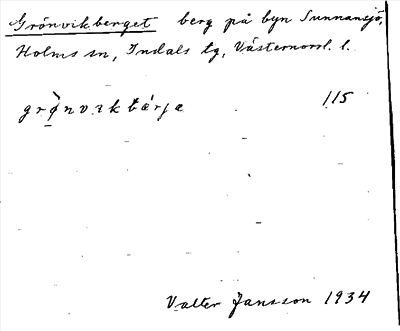 Grönvikberget berg på byn Sunnansjö,
Holms sn, Indals tg, Västernorrl. l.
grø̀nvɩkbærjɛ 115
Valter Jansson 1934